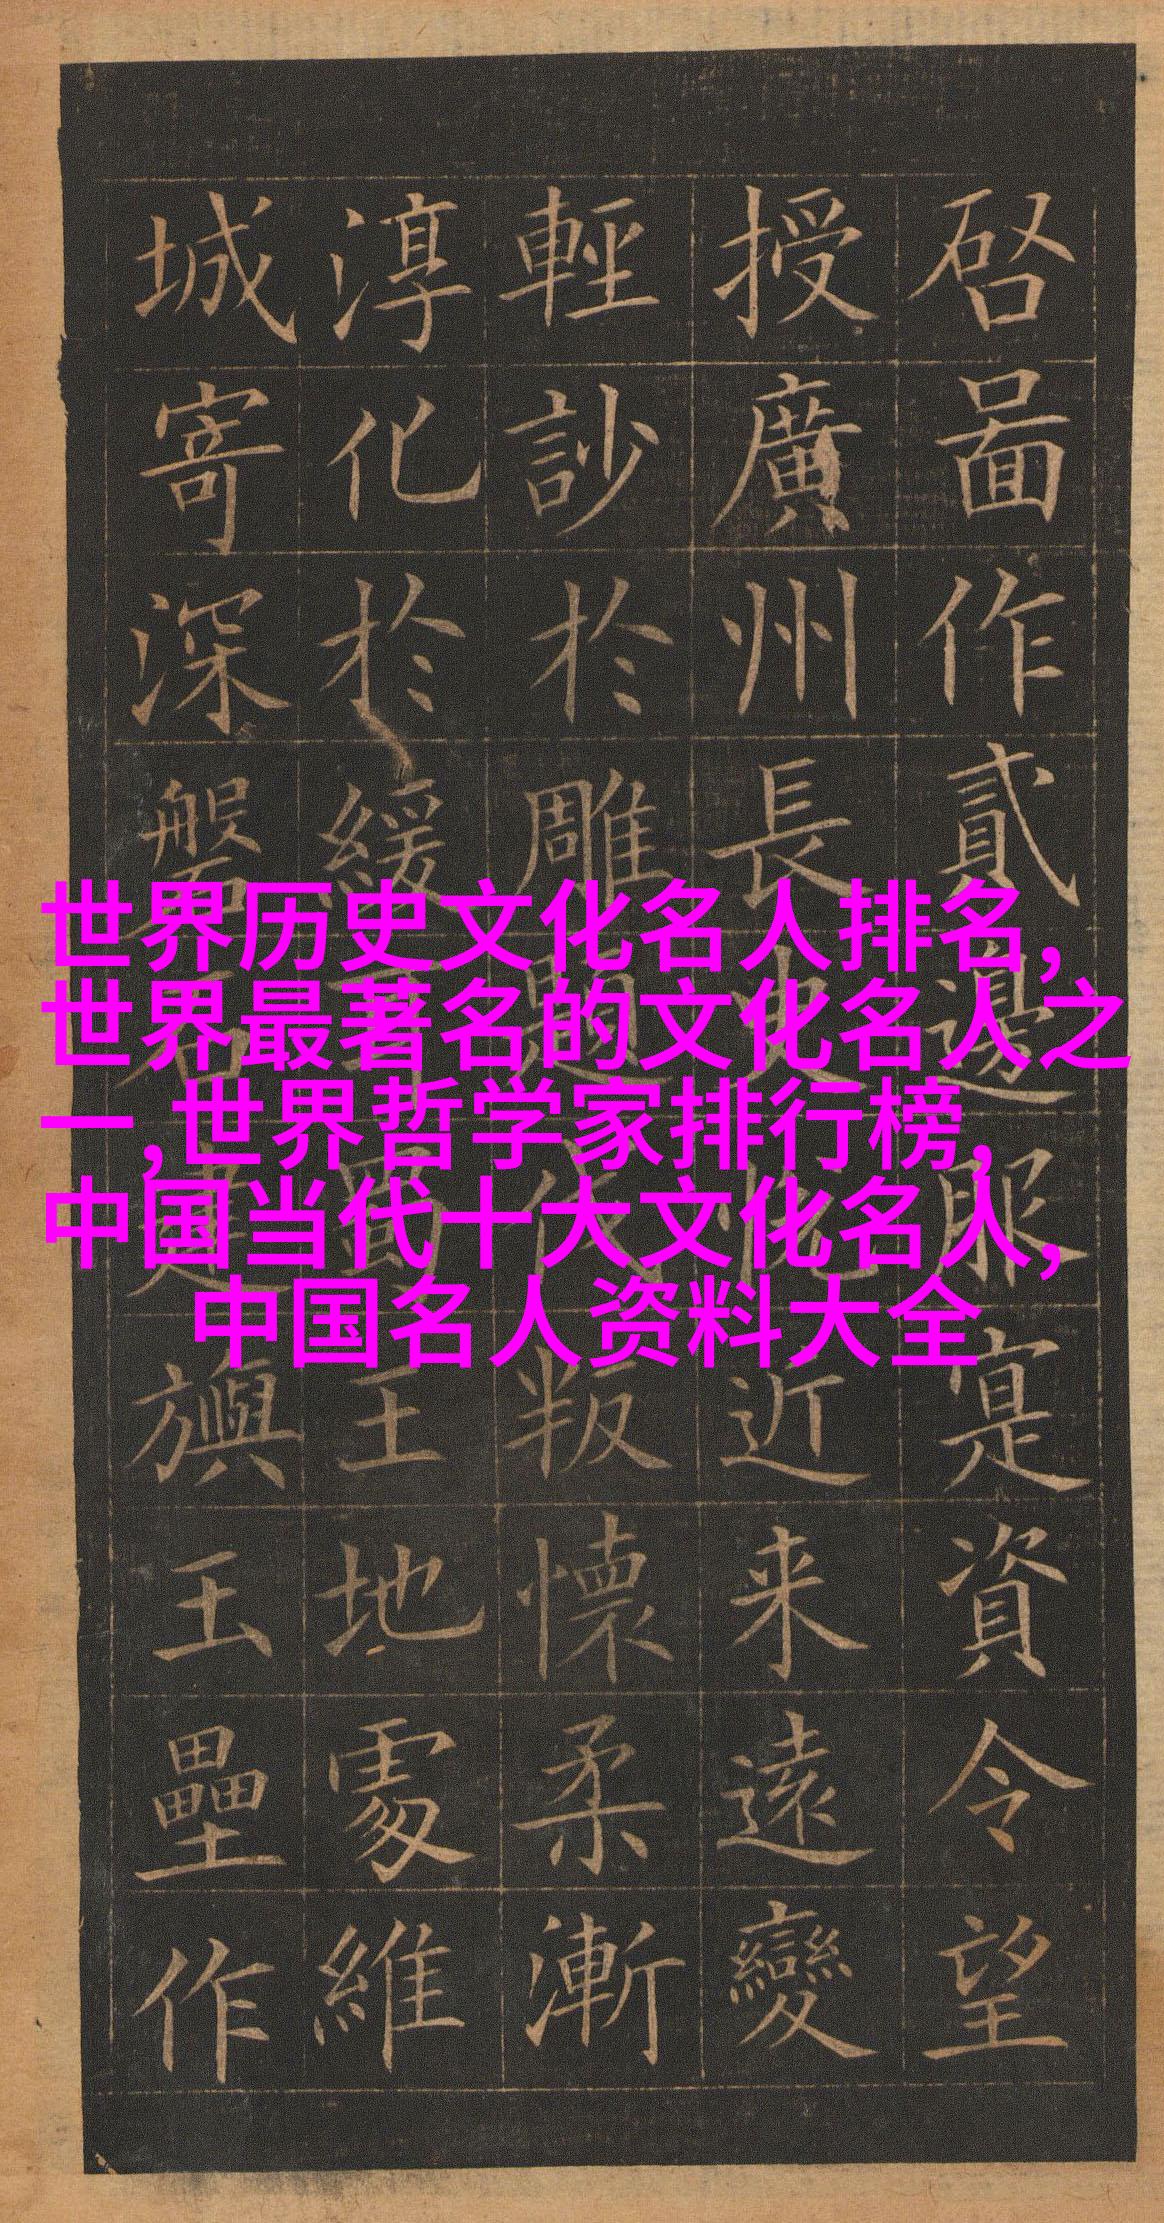 世界历史文化名人排名,
世界最著名的文化名人之
一,世界哲学家排行榜,
中国当代十大文化名人,
中国名人资料大全
啓啚作貳邊服寔資令望
授廣州長史悅近来遠變
輕訬於雕題伐叛懷柔漸
淳化於緩耳蜀王地處維
城寄深磐石建旟玉壘作